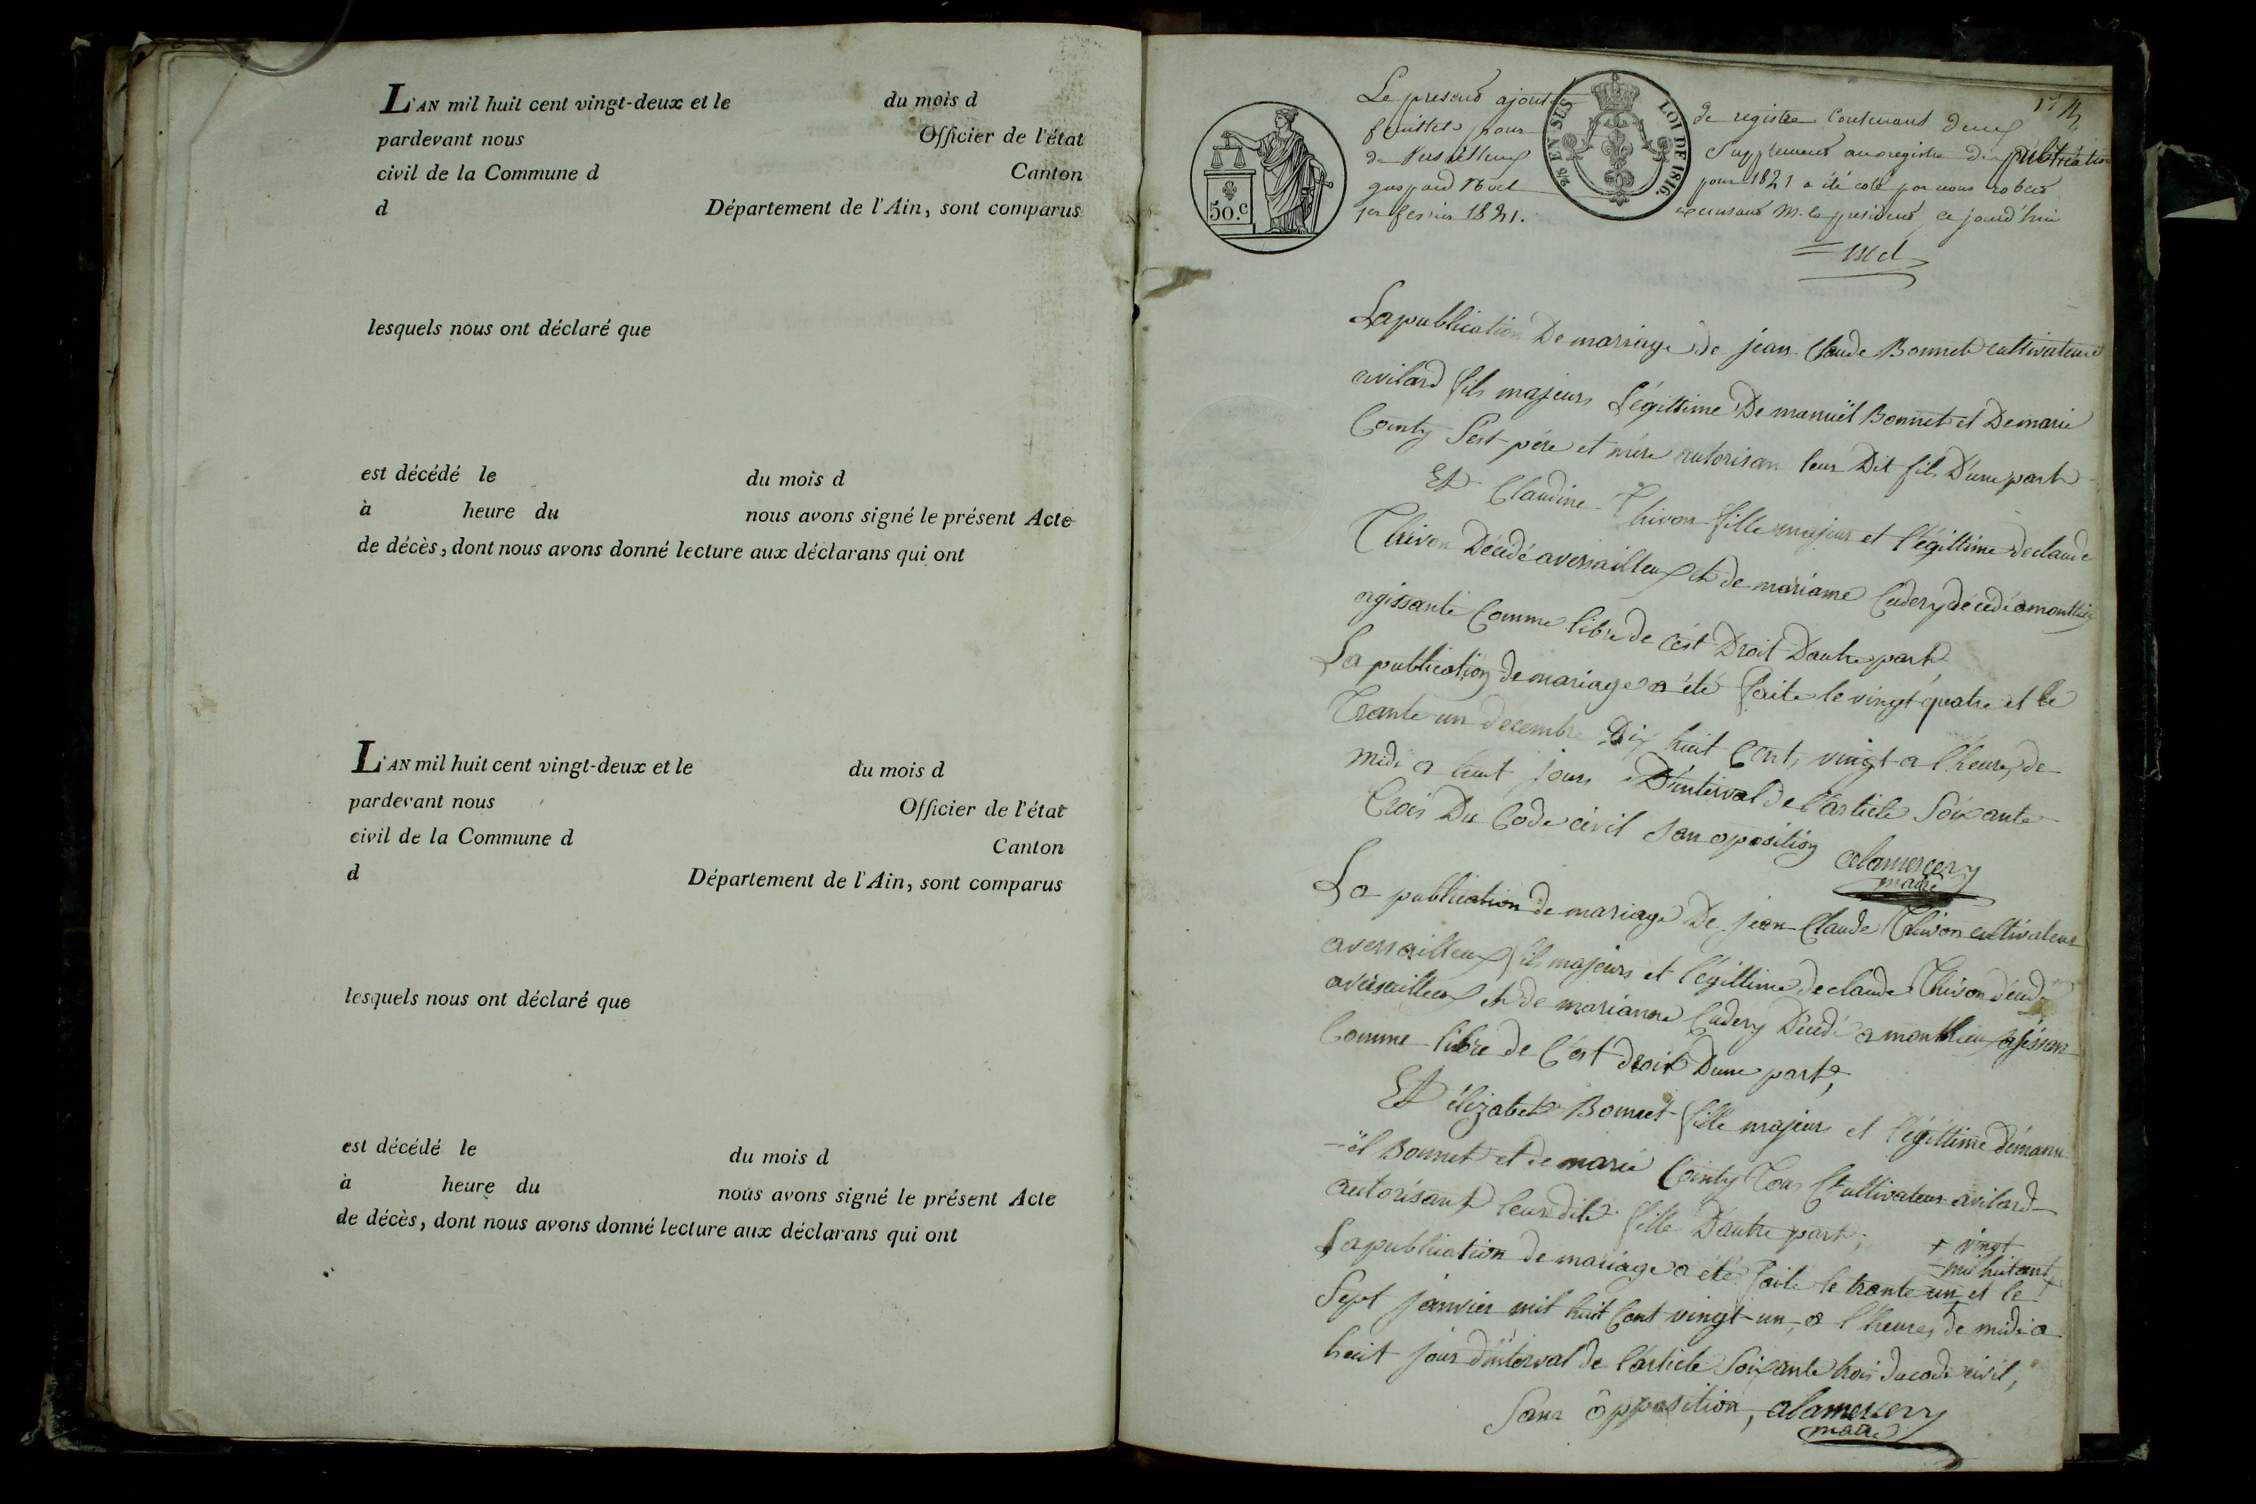 L'AN mil huit cent vingt-deux et le du mois d
pardevant nous Officier de l'état
civil de la Commune d Canton
d Département de l'Ain, sont comparus
lesquels nous ont déclaré que
est décédé le du mois d
à heure du nous avons signé le présent Acte
de décès, dont nous avons donné lecture aux déclarans qui ont
L'AN mil huit cent vingt-deux et le du mois d
pardevant nous Officier de l'état
civil de la Commune d Canton
d Département de l'Ain, sont comparus
lesquels nous ont déclaré que
est décédé le du mois d
à heure du nous avons signé le présent Acte
de décès, dont nous avons donné lecture aux déclarans qui ont
50.c
2/6 EN SUS
LOI DE 1816.
Le présent ajouté de registre contenant deux
feuillets pour supplement au registre de publication
de Versailleux pour 1821 a été coté par nous
gaspard M. le president, ce jourd'hui
1er fevrier 1821.
La publication De mariage de jean Claude Bonnet cultivateur
avilard fils majeur Légittime De manuël Bonnet et De marie
Cointy Sest père et mère autorisan leur Dit fils D'une part
Et Claudine Thivon fille majeur et légittime de claude
Thivon Décédé aversailleux et de mariane Cadery décédé amontlieu
agissante Comme libre de c'est Droit D'autre part
La publication de mariage a été faite le vingt quatre et le
Trante un decembre Dix huit Cent vingt a l'heure de
midi a huit jours D'interval de l'article Soixante
trois Du Code civil san oposition
alamercery
maire
La publication de mariage De jean Claude Thivon cultivateur
aversailleux fils majeurs et légittime de claude Thivon décédé
aversailleux et de marianne Cadery Décédé a montlieu agissan
Comme libre de c'est droit D'une part,
Et élizabet Bonnet fille majeur et légittime d'émanu
-ël Bonnet et de marie Cointy Tous Cultivateur avilard
autorisant leur dite fille D'autre part;
+ vingt
mil huit cent
La publication de mariage a été faite le trante un et le
Sept janvier mil huit Cent vingt-un, a l'heure de midi a
huit jour d'interval de l'article Soixante trois du code civil,
Sans opposition, alamercery
maire